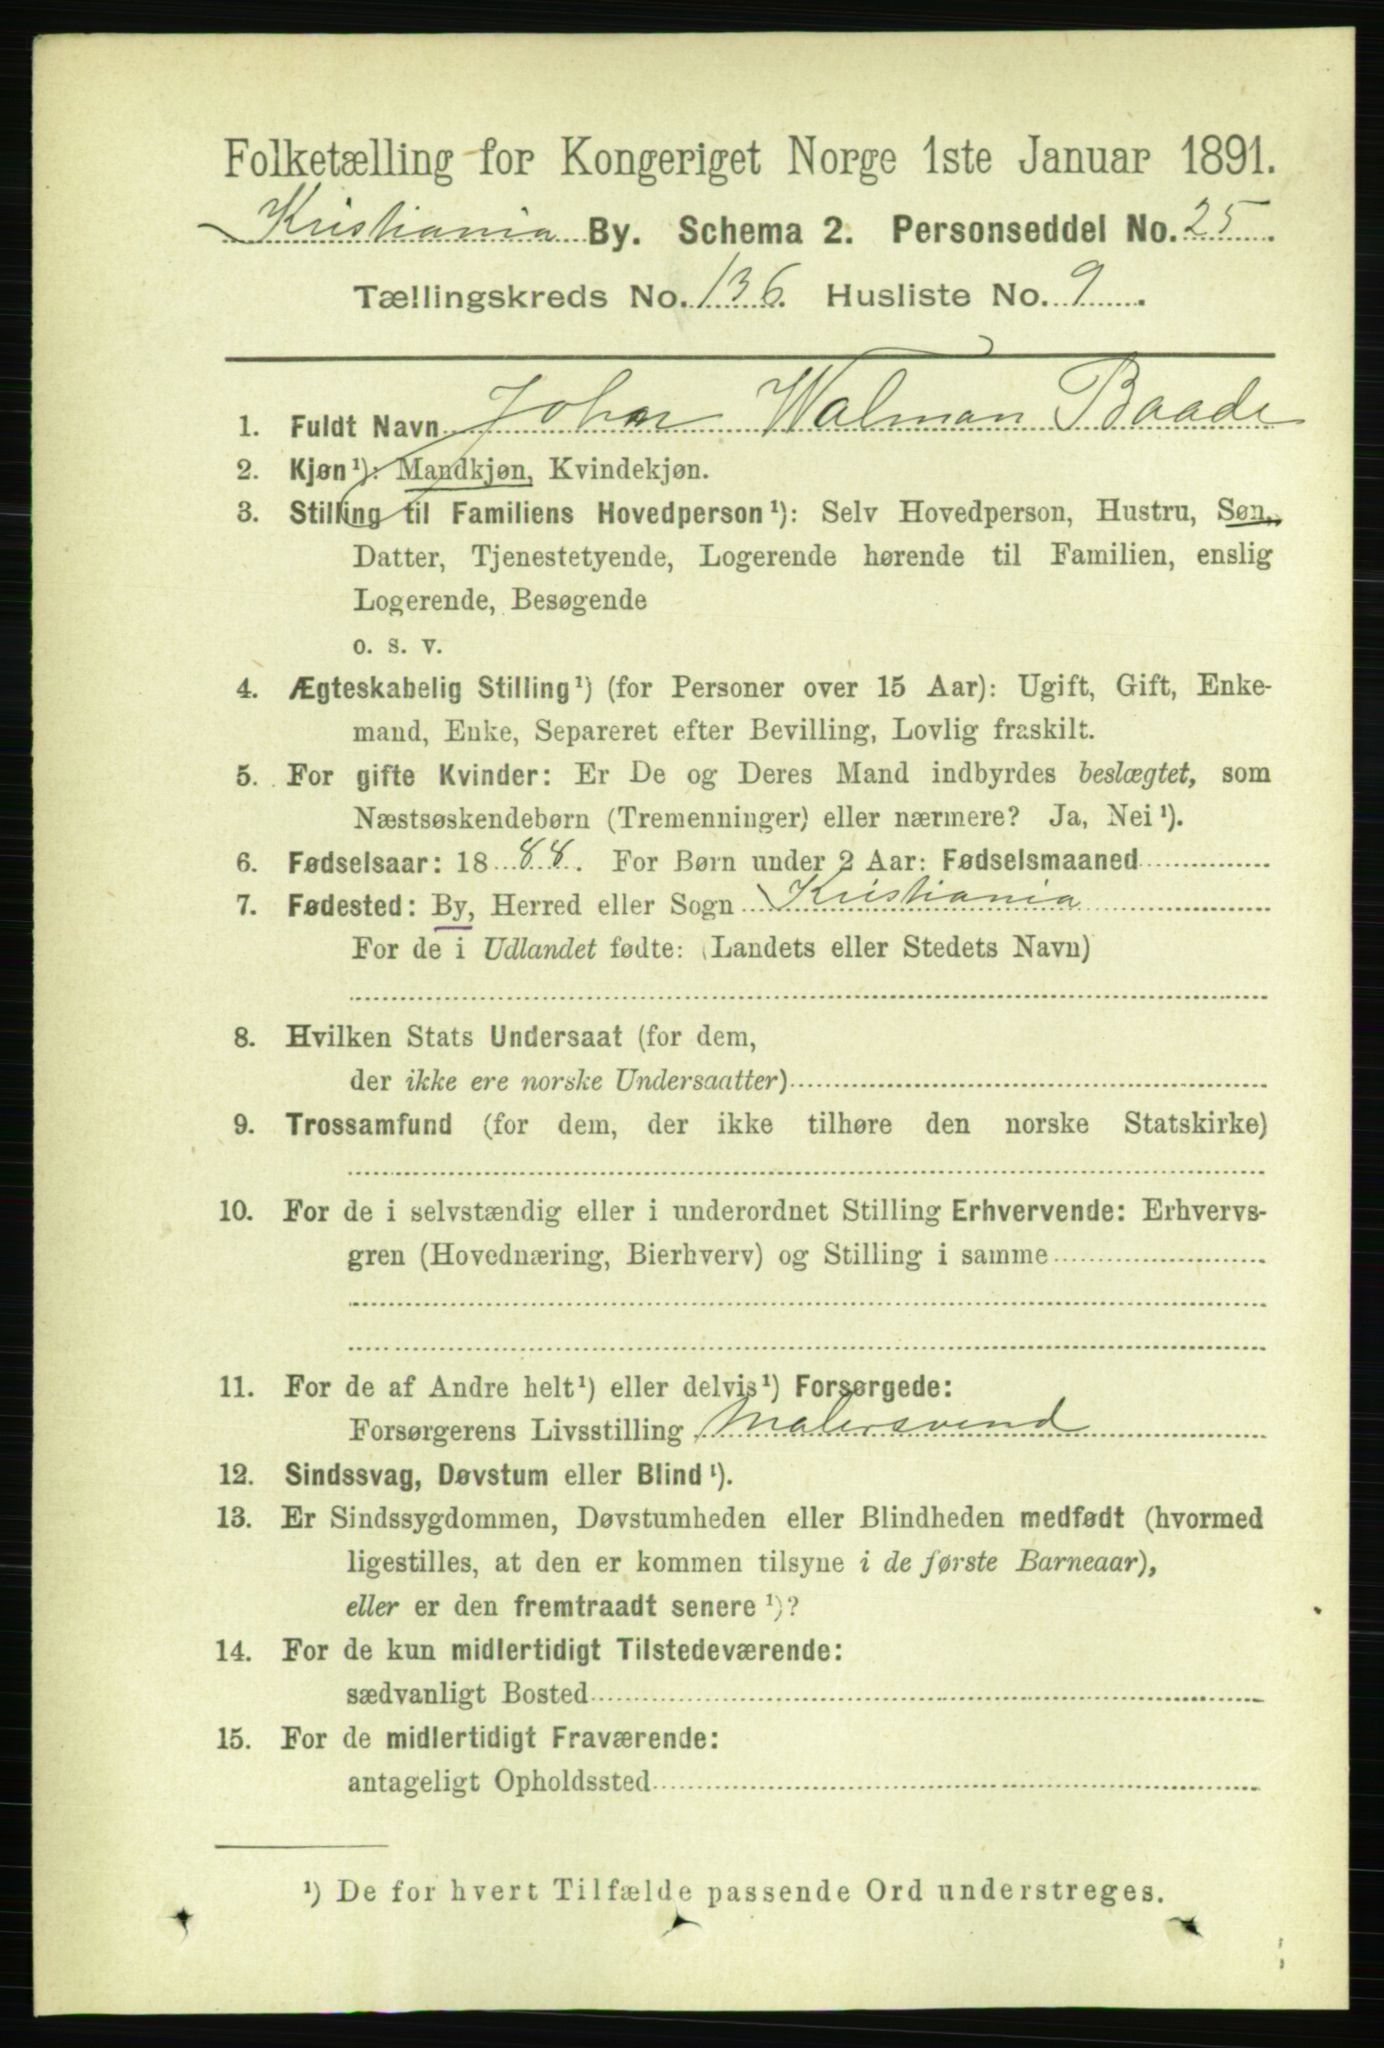 Folketælling for Kongeriget Norge 1ste Januar 1891.
Kristiania By. Schema 2. Personseddel No. 25.
Tællingskreds No. 136. Husliste No. 9.
1. Fuldt Navn Johan Walman Baade
2. Kjøn¹): Mandkjøn, Kvindekjøn.
3. Stilling til Familiens Hovedperson¹): Selv Hovedperson, Hustru, Søn,
Datter, Tjenestetyende, Logerende hørende til Familien, enslig
Logerende, Besøgende
o. s. v.
4. Ægteskabelig Stilling¹) (for Personer over 15 Aar): Ugift, Gift, Enke-
mand, Enke, Separeret efter Bevilling, Lovlig fraskilt.
5. For gifte Kvinder: Er De og Deres Mand indbyrdes beslægtet, som
Næstsøskendebørn (Tremenninger) eller nærmere? Ja, Nei¹).
6. Fødselsaar: 1888. For Børn under 2 Aar: Fødselsmaaned
7. Fødested: By, Herred eller Sogn Kristiania
For de i Udlandet fødte: (Landets eller Stedets Navn)
8. Hvilken Stats Undersaat (for dem,
der ikke ere norske Undersaatter)
9. Trossamfund (for dem, der ikke tilhøre den norske Statskirke)
10. For de i selvstændig eller i underordnet Stilling Erhvervende: Erhvervs-
gren (Hovednæring, Bierhverv) og Stilling i samme
11. For de af Andre helt¹) eller delvis¹) Forsørgede:
Forsørgerens Livsstilling Malersvend
12. Sindssvag, Døvstum eller Blind¹).
13. Er Sindssygdommen, Døvstumheden eller Blindheden medfødt (hvormed
ligestilles, at den er kommen tilsyne i de første Barneaar),
eller er den fremtraadt senere¹)?
14. For de kun midlertidigt Tilstedeværende:
sædvanligt Bosted
15. For de midlertidigt Fraværende:
antageligt Opholdssted
¹) De for hvert Tilfælde passende Ord understreges.